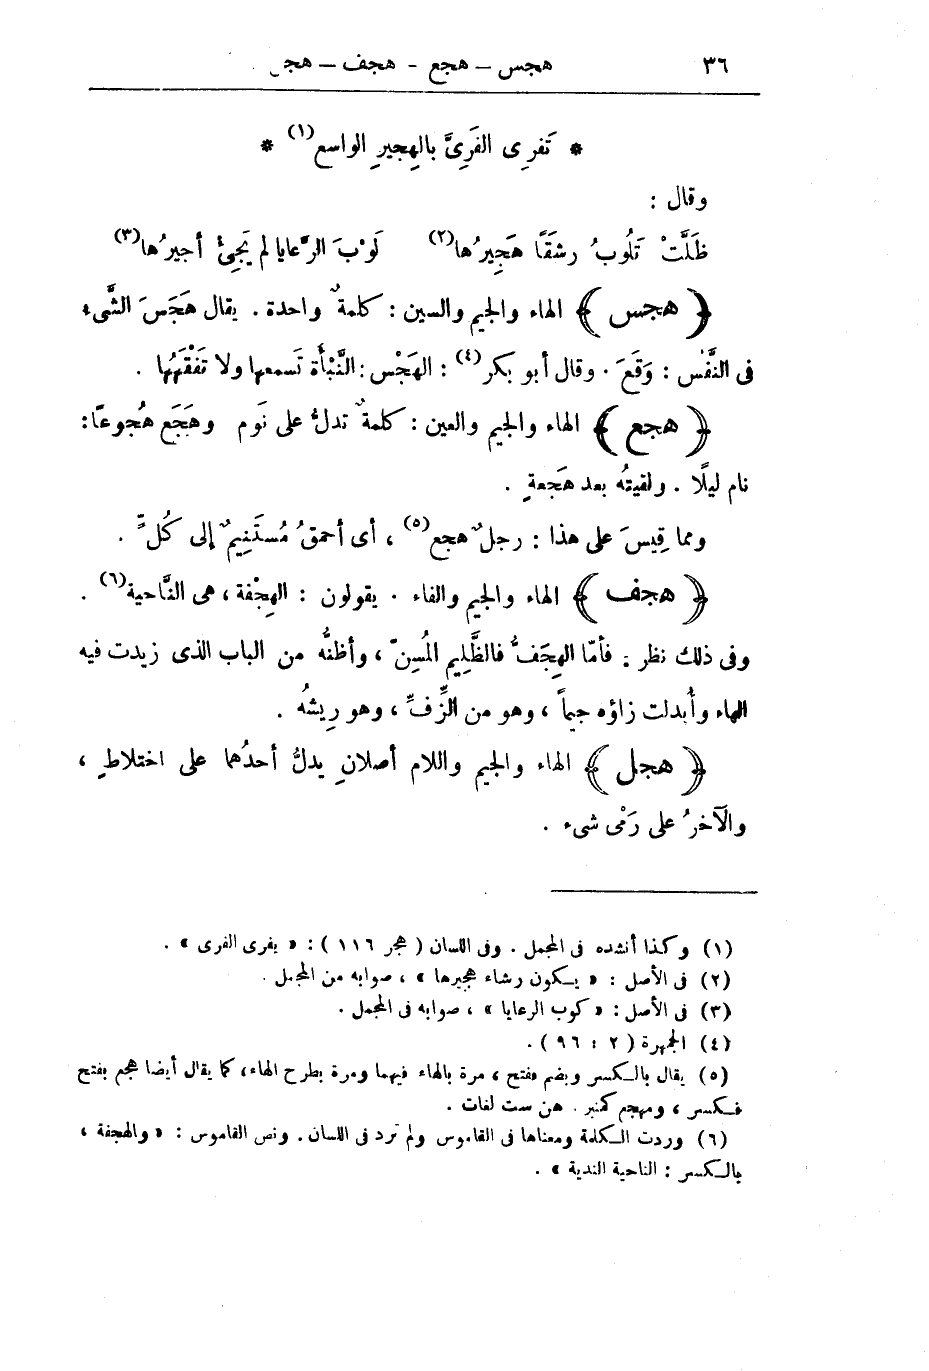 ٣٦ هجس – هجع - هجف – هجل
* تَفرِى الفَرِىَّ بالهِجيرِ الواسع(١) *
وقال :
ظَلَّتْ تَلُوبُ رشَقًا هَجِيرُها(٢) لَوْبَ الرَّعايا لم يَجِئْ أجيرُها(٣)
﴿ هجس ﴾ الهاء والجيم والسين : كلمةٌ واحدة . يقال هَجَسَ الشَّىء
فى النَّفْس : وَقَعَ . وقال أبو بكر(٤) : الهَجْس : النَّبْأَة تَسمعها ولا تَفْقَهُها .
﴿ هجع ﴾ الهاء والجيم والعين : كلمةٌ تدلُّ على نَوم وهَجَع هُجوعًا :
نام ليلًا . ولقيتُه بعد هَجعةٍ .
ومما قِيسَ على هذا : رجلٌ هجع(٥) ، أى أحمقُ مُستَنِيمٌ إلى كُلٍّ .
﴿ هجف ﴾ الهاء والجيم والفاء . يقولون : الهِجْفة ، هى النَّاحية(٦) .
وفى ذلك نظر : فأمّا الهِجَفُّ فالظَّلِيم المُسِنّ ، وأظنُّه من الباب الذى زيدت فيه
الهاء وأُبدلت زاؤه جيماً ، وهو من الزِّفِّ ، وهو رِيشُه .
﴿ هجل ﴾ الهاء والجيم واللام أصلانِ يدلُّ أحدُهما على اختلاطٍ ،
والآخرُ على رَمْى شىء .
(١) وكذا أنشده فى المجمل . وفى اللسان ( هجر ١١٦ ) : « يفرى الفرى » .
(٢) فى الأصل : « يكون رشاء هجيرها » ، صوابه من المجمل .
(٣) فى الأصل : « كوب الرعايا » ، صوابه فى المجمل .
(٤) الجمهرة ( ٢ : ٩٦ ) .
(٥) يقال بالكسر وبضم ففتح ، مرة بالهاء فيهما ومرة بطرح الهاء، كما يقال أيضا هجم بفتح
فكسر ، ومهجم كمنبر . هن ست لغات .
(٦) وردت الكلمة ومعناها فى القاموس ولم ترد فى اللسان . ونص القاموس : « والهجفة ،
بالكسر : الناحية الندية » .